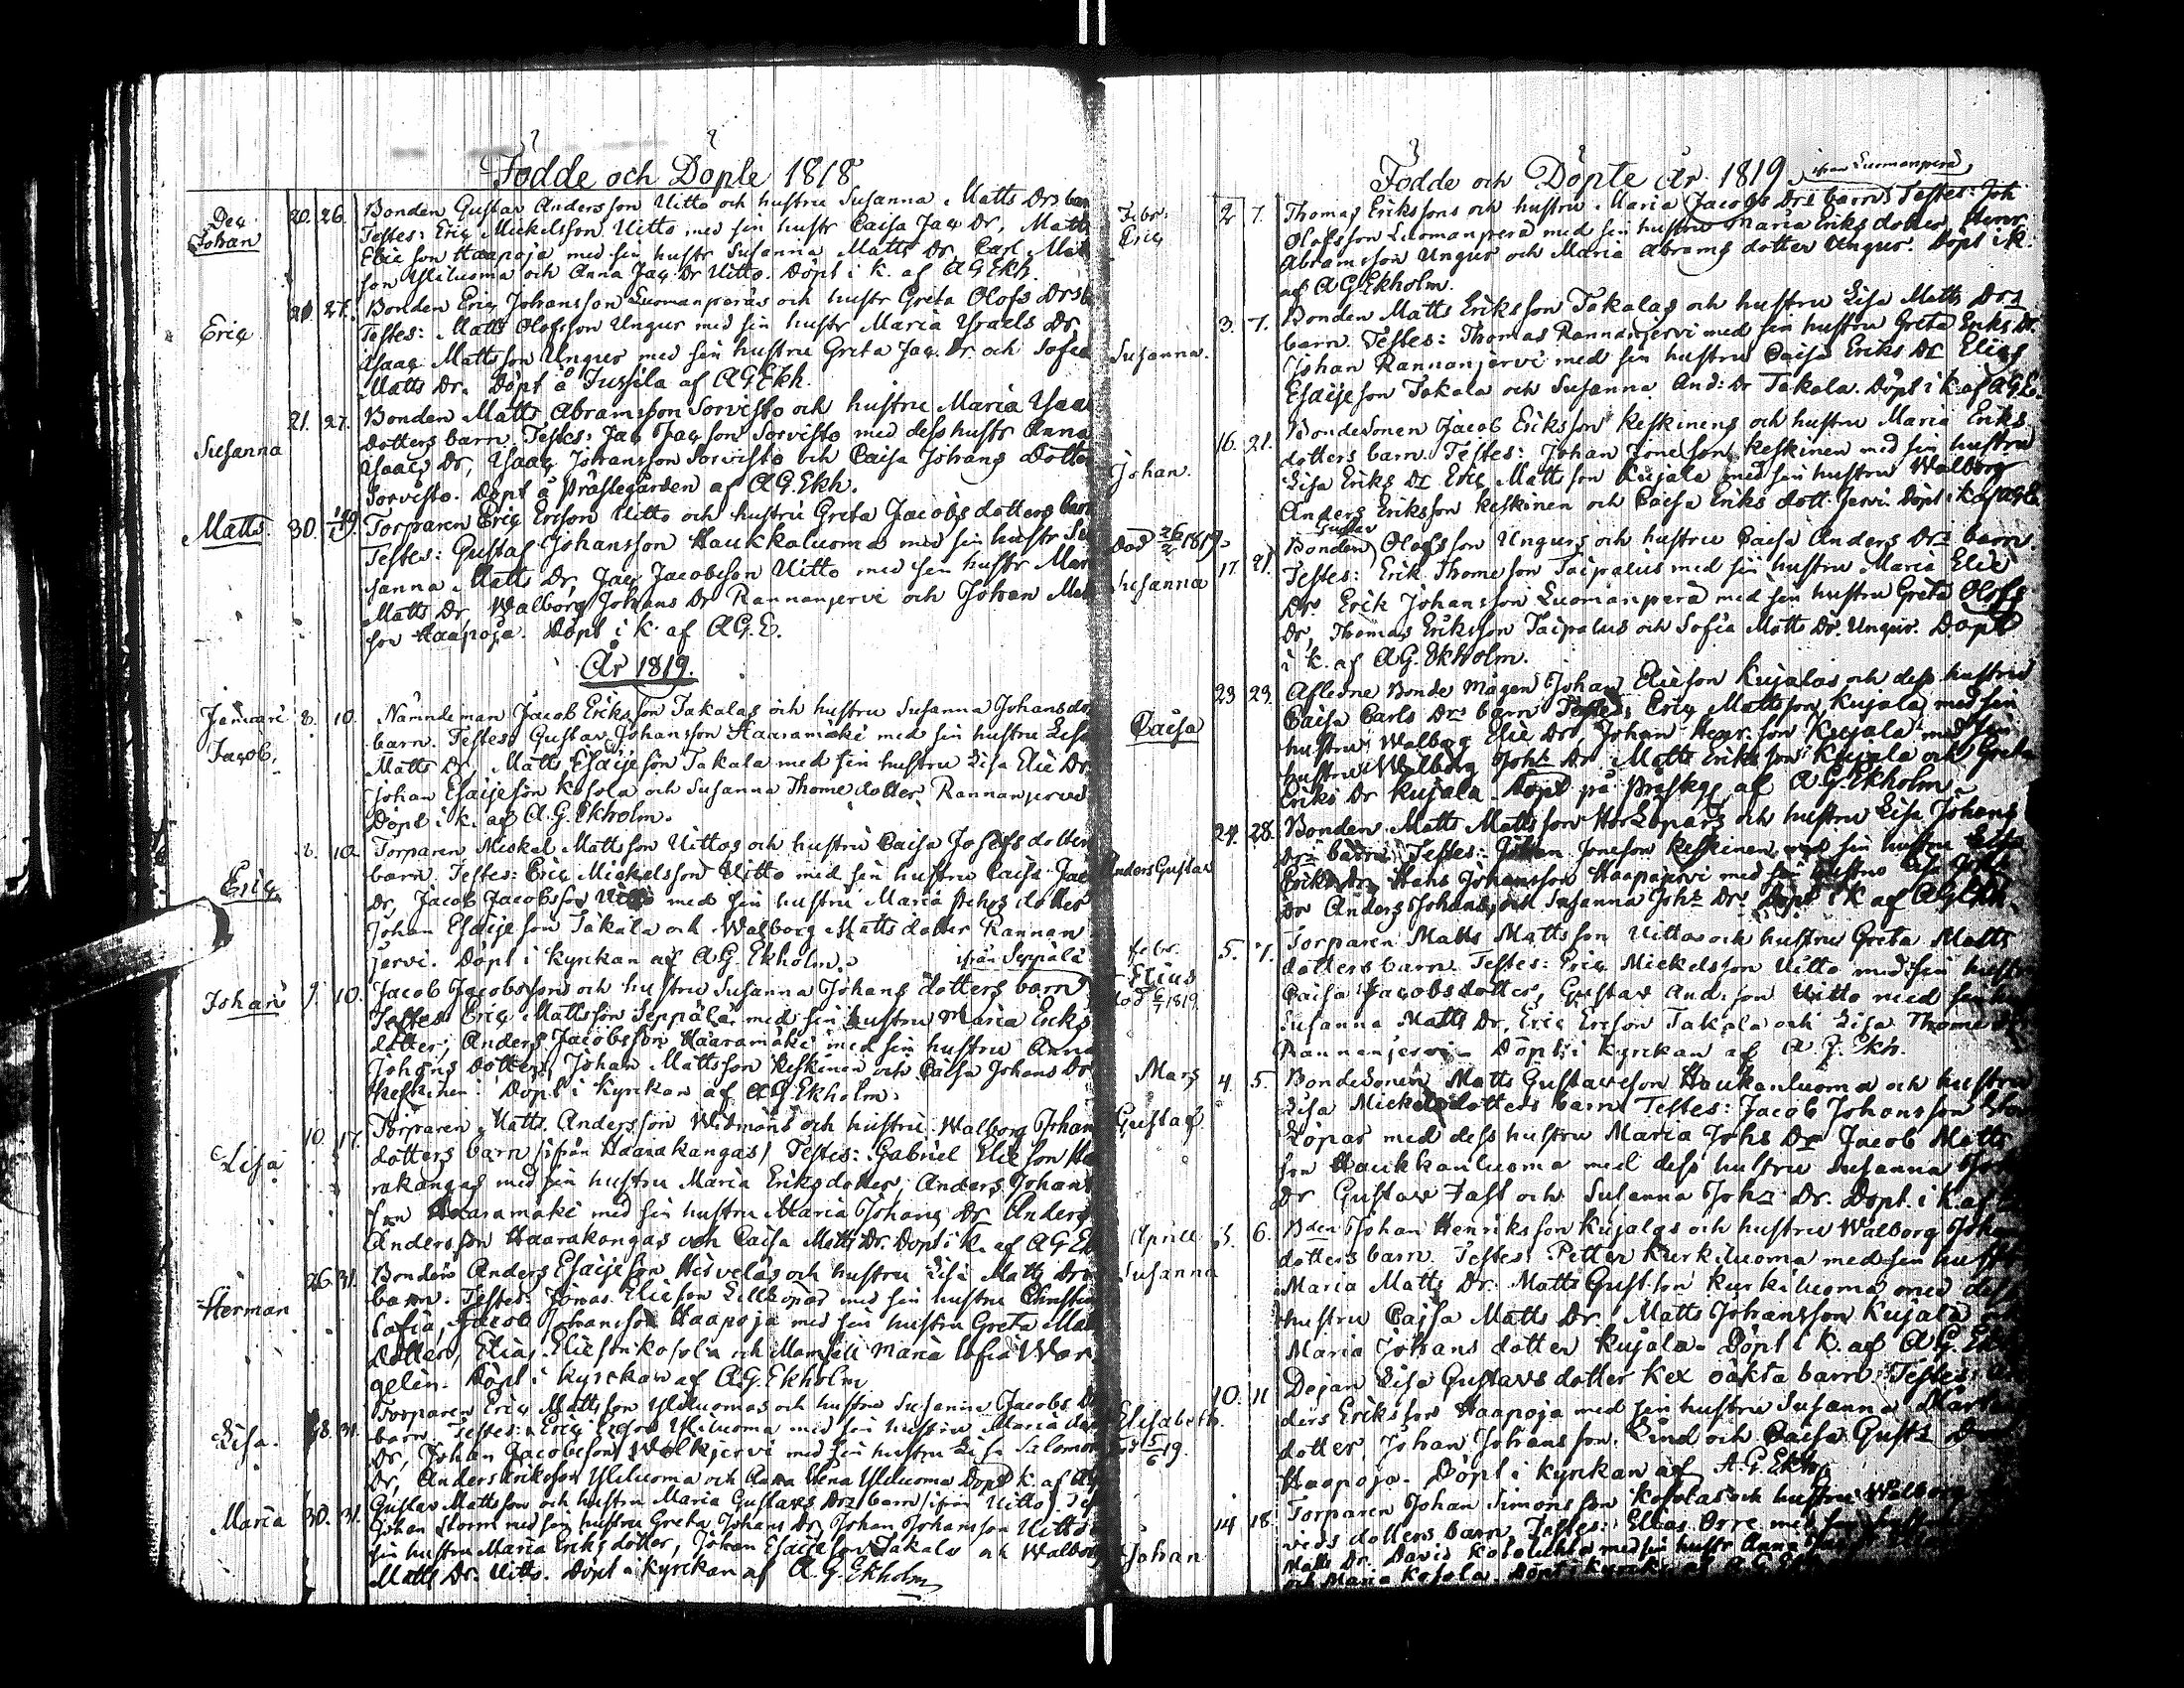 Födde och Döpte 1818
Dec 20. 26. Bonden Gustav Andersson Uitto och hustru Susanna Matts Drs barn
Johan Testes: Eric Mickelsson Uitto med sin hustr Caisa Jac Dr, Matts
Elie son Haapoja med sin hustr Susanna Matts Dr, Carl Matt
son Yliluoma och Anna Jac Dr Uitto. Döpt i K. af A G Ekh.
27. Bonden Eric Johansson Luomanperäs och hustr Greta Olofs Drs b
Eric Testes: Matts Olofsson Ungur med sin hustr Maria Ysraels Dr,
Ysaac Mattsson Ungur med sin hustru Greta Jac Dr. och Sofia
Matts Dr. Döpt å Jussila af A G Ekh.
21. 27. Bonden Matts Abramsson Sorvisto och hustru Maria Ysaac
Susanna dotters barn. Testes: Jac Jac son Sorvisto med dess hustr Anna
Ysaacs Dr, Ysaac Johansson Sorvisto och Caisa Johans Dotter
Sorvisto. Döpt å Prästegården af A G. Ekh.
Matts. 30. Torparen Eric Ersson Uitto och hustru Greta Jacobs dotters barn
Testes: Gustaf Johansson Haukkaluoma med sin hustr Su
sanna Matts Dr, Jac Jacobsson Uitto med sin hustr Mar
Matts Dr, Walborg Johans Dr Rannanjervi och Johan Matt
son Haapoja. Döpt i K. af A G. E.
År 1819.
Januari 8. 10. Nämndeman Jacob Eriksson Takalas och hustru Susanna Johans do
Jacob. barn. Testes: Gustav Johansson Haaramäki med sin hustru Lisa
Matts Dr, Matts Esaijeson Takala med sin hustru Lisa Elie Dr
Johan Esaijeson Kosola och Susanna Thome dotter Rannanjervi
Döpt i K. af A. G. Ekholm.
8. 10. Torparen Mickel Mattsson Uittos och hustru Caisa Josefs dotters
Eric barn. Testes: Eric Mickelsson Uitto med sin hustru Caisa Jac
Dr, Jacob Jacobsson Uitto med sin hustru Maria dotter
Johan Esaijeson Takala och Walborg Matts dotter Rannan
jervi. Döpt i Kyrckan af A G. Ekholm. ifrån Seppälä
Johan 9. 10. Jacob Jacobsson och hustru Susanna Johans dotters barn
Testes: Eric Mattsson Seppälä med sin hustru Maria Ericks
dotter, Anders Jacobsson Haaramäki med sin hustru Anna
Johans Dotter, Johan Mattsson Keskinen och Caisa Johans Dr
Keskinen. Döpt i Kyrckan af A G Ekholm.
10. 17. Torparen Matts Andersson Widmans och hustru Walborg Johan
Lisa dotters barn ifrån Haarakangas/ Testes: Gabriel Elie son Haa
rakangas med sin hustru Maria Eriks dotter, Anders Johans
son Haaramäki med sin hustru Maria Johans Dr Anders
Andersson Haarakangas och Caisa Matts Dr. Döpt i K. af A G Ek
26. 31. Bonden Anders Esaijeson Hirvelas och hustru Lisa Matts Drs
Herman barn. Testes: Jonas Elieson Lillköpas med sin hustru Christin
Sofia, Jacob Johansson Haapoja med sin hustru Greta Matt
Dotter, Elias Elieson Kosola och Mamsell Maria Sofia War
gelin. Döpt i Kyrckan af A. G. Ekholm
Torparen Eric Mattsson Yliluomas och hustru Susanna Jacobs D
Lisa. 28. 31. barn. Testes: Eric Ersson Yliluoma med sin hustru Maria
Dr, Johan Jacobsson Walkjervi med sin hustru Lisa Salomon
Dr, Anders Eriksson Yliluoma och Anna Lena Yliluoma Döpt K. af A
Maria 30. 31. Gustav Mattsson och hustru Maria Gustavs Drs barn ifrån Uitto/ Tes
Johan Storm med sin hustru Greta Johans Dr, Johan Johansson Uitto
sin hustru Maria Eriks dotter, Johan Esaijeson Takala och Walborg
Matts Dr. Uitto. Döpt i Kyrckan af A. G. Ekholm
Födde och Döpte År 1819 ifrån Luomanperä
Febr. 2 7. Thomas Erikssons och hustru Maria Jacobs Drs barn. Testes: Joh
Eric Olofsson Luomanperä med sin hustru Maria Eriks dotter, Henr
Abramsson Ungur och Maria Abrams dotter Ungur. Döpt i K.
af A G Ekholm.
3. 7. Bonden Matts Eriksson Takalas och hustru Lisa Matts Drs
Susanna. barn. Testes: Thomas Rannanjervi med sin hustru Greta Eriks Dr.
Johan Rannanjervi med sin hustru Caisa Eriks Dr Elias
Esaijeson Takala och Susanna And: Dr Takala. Döpt i K. af A G E.
16. 21. Bondesonen Jacob Eriksson Keskinens och hustru Maria Eriks
Johan. dotters barn. Testes: Johan Joneson Keskinen med sin hustru
Lisa Eriks Dr Eric Mattsson Kujala med sin hustru Walborg
Anders Eriksson Keskinen och Caisa Eriks dott: Jervi. Döpt i K. af A G E.
Död 1819. Bonden Gustav Olofsson Ungurs och hustru Caisa Anders Drs barn.
Susanna 17. 21. Testes: Erik Thomeson Taipalus med sin hustru Maria Elie
Dr, Erik Johansson Luomanperä med sin hustru Greta Olofs
Dr, Thomas Eriksson Taipalus och Sofia Matts Dr. Ungur. Döpt
i K. af A G. Ekholm.
23 29. Aflidne Bonde Mågen Johan Elieson Kujalas och dess hustru
Caisa Caisa Carls Drs barn Testes: Eric Mattsson Kujala med sin
hustru Walborg Elie Dr Johan Henr. son Kujala med sin
hustru Walborg Johs Dr. Matts Eriksson Kujala och Greta
Eriks Dr Kujala. Döpt på af A G. Ekholm
24. 28. Bonden Matts Mattsson Storköpars och hustru Lisa Johans
Anders Gustav Drs barn. Testes: Johan Joneson Keskinen med sin hustru Lisa
Eriks Dr, Hans Johansson Haapajervi med sin hustru Lisa
Dr Anders Johans och Susanna Johs Dr. Döpt i K af A G Ekh.
Febr. 5. 7. Torparen Matts Mattsson Uittos och hustru Greta Matts
Elius dotters barn. Testes: Eric Mickelsson Uitto med sin hustru
död 1819 Caisa Jacobs dotter, Gustav And. son Uitto med sin hu
Susanna Matts Dr, Eric Ersson Takala och Lisa Thome
Rannanjervi. Döpt i Kyrckan af A. G. Ekh.
Mars 4. 5. Bondesonen Matts Gustavsson Haukanluoma och hustru
Gustaf Lisa Mickels dotters barn Testes: Jacob Johansson Stor
köpar med dess hustru Maria Johs Dr Jacob Matts
son Haukkanluoma med dess hustru Susanna Joh
Dr Gustav Fast och Susanna Johs Dr. Döpt i K. af
Aprill 5. 6. Bden Johan Henriksson Kujalas och hustru Walborg Johan
Susanna dotters barn. Testes: Petter Kurkiluoma med sin hustru
Maria Matts Dr. Matts Gust. son Kurkiluoma med dess
hustru Caisa Matts Dr. Matts Johansson Kujala och
Maria Johans dotter Kujala. Döpt i K. af A G. Ekh
10. 11 Dejan Lisa Gustavs dotter Kex oäkta barn. Testes: An
Elisabeth. ders Eriksson Haapoja med sin hustru Susanna Mårtens
död 5/6 19. dotter, Johan Johansson Lind och Caisa Gusts Dr
Haapoja. Döpt i Kyrckan af A. G. Ekh
14 18. Torparen Johan Simonsson Kosolas och hustru Walborg
Johan vids dotters barn, Testes: Elias Orre med sin hustru
Matts Dr. David med sin hustr Anna
och Maria Kosola. Döpt i Kyrck. af A. G. Ekh